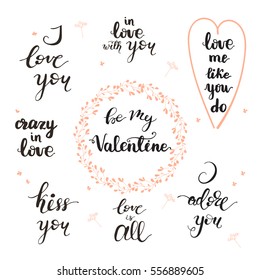 I
love
you
in
love
with you
love
me
like
you
do
crazy
in
love
be my
Valentine
kiss
you
love
is
all
I
adore
you
shutterstock.com · 556889605